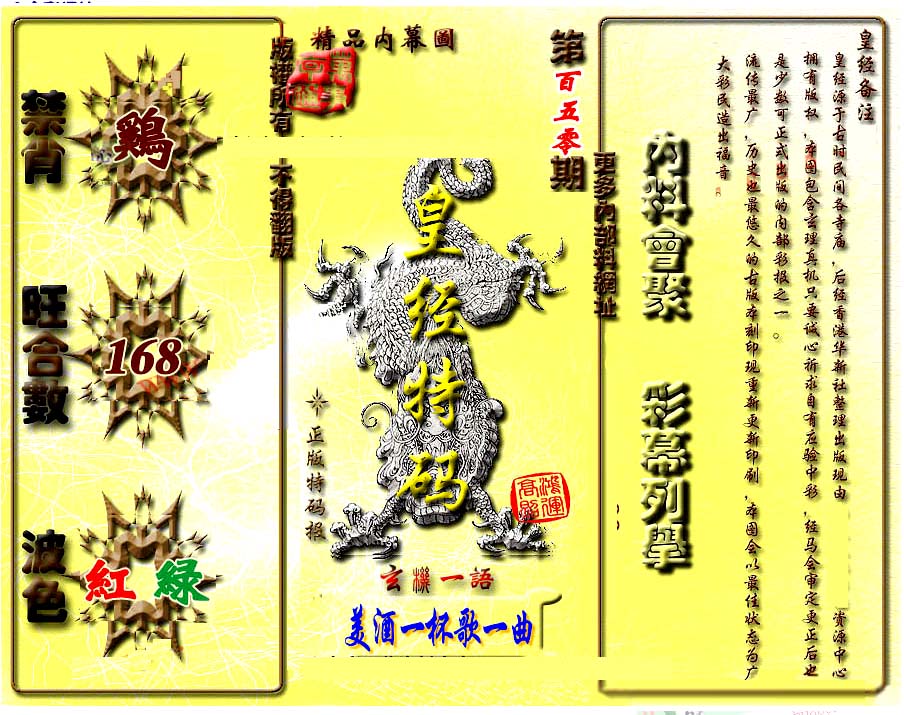 精品內幕圖
版權所有
不得翻版
第百五零期
更多內部料網址
禁肖
鷄
旺合數
168
波色
紅 綠
皇经特码
正版特码报
鴻運高照
玄機一語
美酒一杯歌一曲
內料會聚
彩幕列舉
皇经备注
皇经源于古时民间各寺庙，后经香港华新社整理出版现由 资源中心
拥有版权，本图包含玄理真机只要诚心祈求自有应验中彩，经马会审定更正后也
是少数可正式出版的内部彩报之一。
流传最广，历史也最悠久的古版本刻印现重新更新印刷，本图会以最佳状态为广
大彩民造出福音